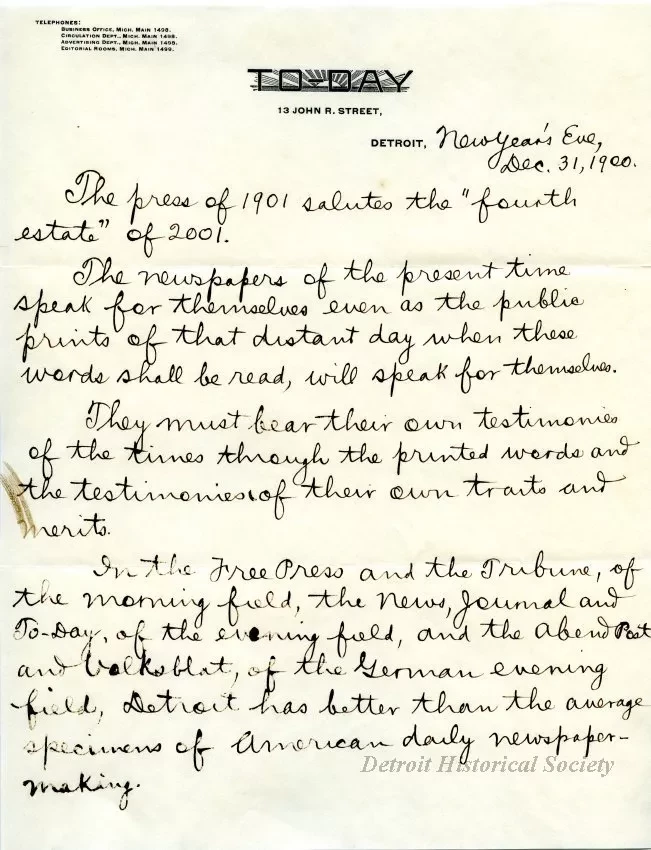 TELEPHONES:
BUSINESS OFFICE, MICH. MAIN 1498.
CIRCULATION DEPT., MICH. MAIN 1498.
ADVERTISING DEPT., MICH. MAIN 1498.
EDITORIAL ROOMS, MICH. MAIN 1499.
TO-DAY
13 JOHN R. STREET,
DETROIT, New Year's Eve,
Dec. 31, 1900.
The press of 1901 salutes the "fourth
estate" of 2001.
The newspapers of the present time
speak for themselves even as the public
prints of that distant day when these
words shall be read, will speak for themselves.
They must bear their own testimonies
of the times through the printed words and
the testimonies of their own traits and
merits.
In the Free Press and the Tribune, of
the morning field, the News, Journal and
To-Day, of the evening field, and the Abend Post
and Volksblat, of the German evening
field, Detroit has better than the average
specimens of American daily newspaper-
making.
Detroit Historical Society